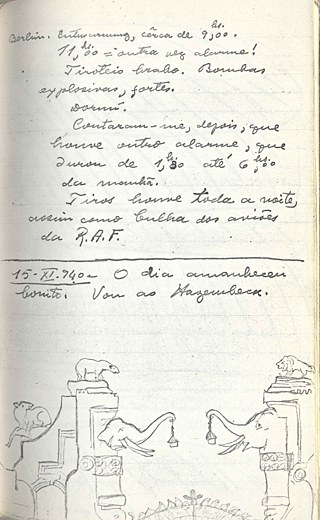 Berlin. Entwarnung, cêrca de 9,hs.00.
11,hs.00 = outra vez alarme!
Tiroteio brabo. Bombas
explosivas, fortes.
Dormí.
Contaram-me, depois, que
houve outro alarme, que
durou de 1,hs30 até 6,hs.00
da manhã.
Tiros houve toda a noite,
assim como bulha dos aviões
da R.A.F.
15-XI-940 - O dia amanheceu
bonito. Vou ao Hagenbeck.